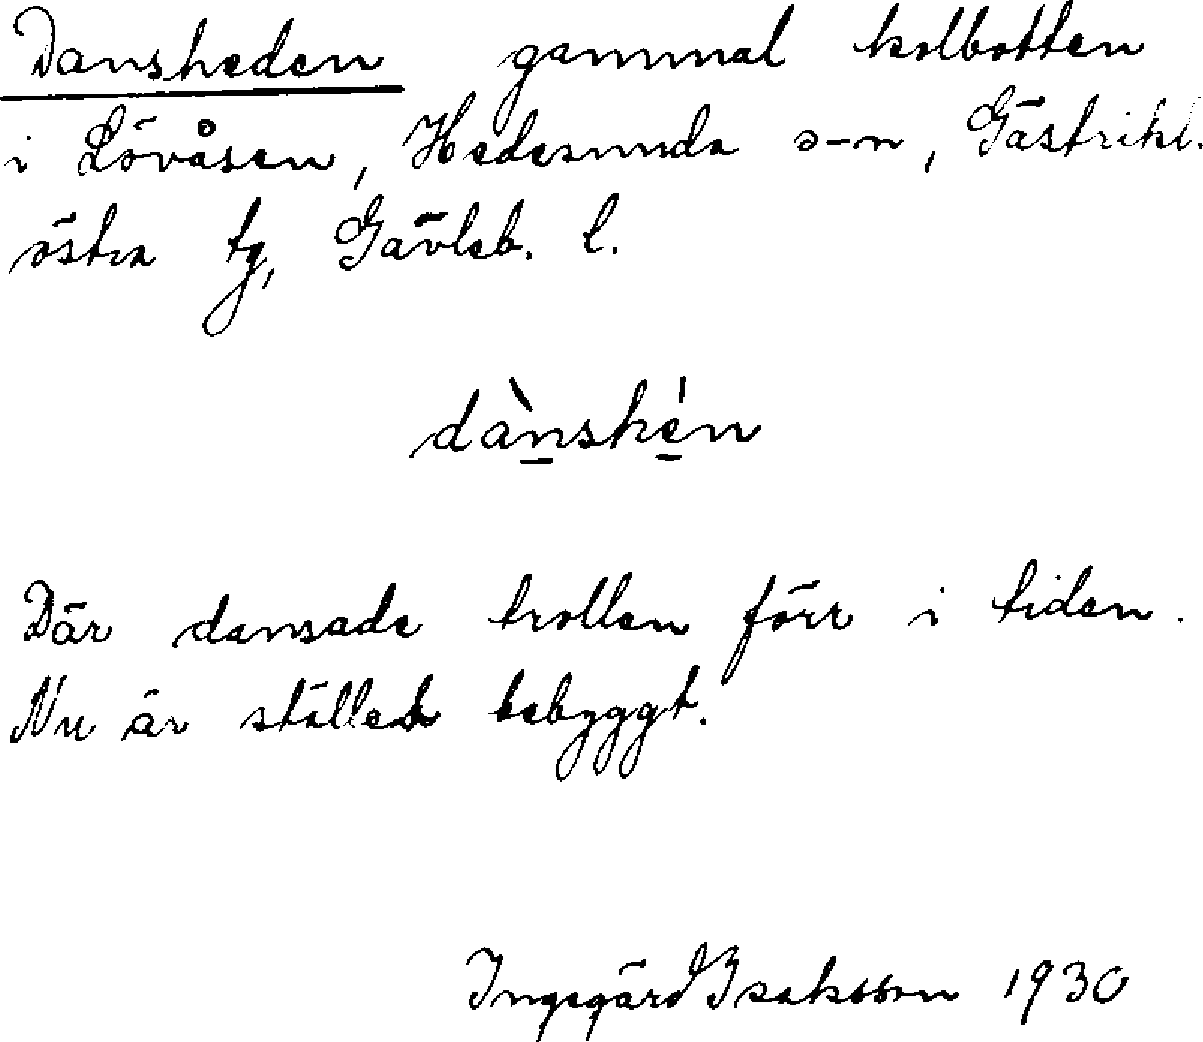 Dansheden gammal kolbotten
i Lövåsen, Hedesunda s-n, Gästrikl.
östra tg, Gävleb. l.
dànshén
Där dansade trollen förr i tiden.
Nu är stället bebyggt.
Ingegärd Isaksson 1930